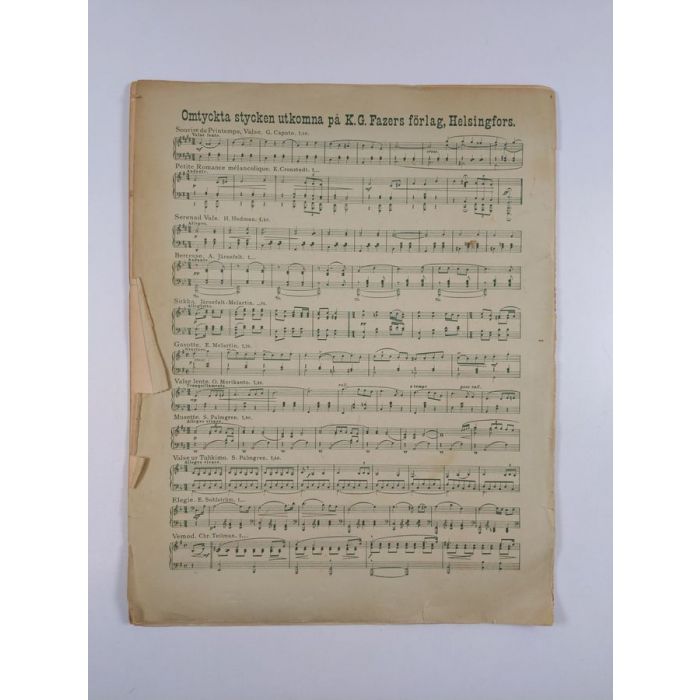 Omtyckta stycken utkomna på K.G. Fazers förlag, Helsingfors.
Sourire du Printemps, Valse. G. Caputo. 1,50.
Valse lente.
cresc.
Petite Romance mélancolique. E. Cronstedt. 1,—
Andante.
Serenad Vals. H. Hedman. 1,50.
Allegro.
Berceuse. A. Järnefelt. 1,—
Andante.
pp
Sirkka. Järnefelt-Melartin.
Allegretto
Gavotte. E. Melartin. 1,25.
Valse lente. O. Merikanto. 1,25.
Tranquillamente.
rall.
a tempo
poco rall.
Musette. S. Palmgren. 1,25.
Allegro vivace.
Valse ur Tuhkimo. S. Palmgren.
Allegro vivace.
Elegie. E. Sohlström. 1,—
Vemod. Chr. Teilman. 1,—